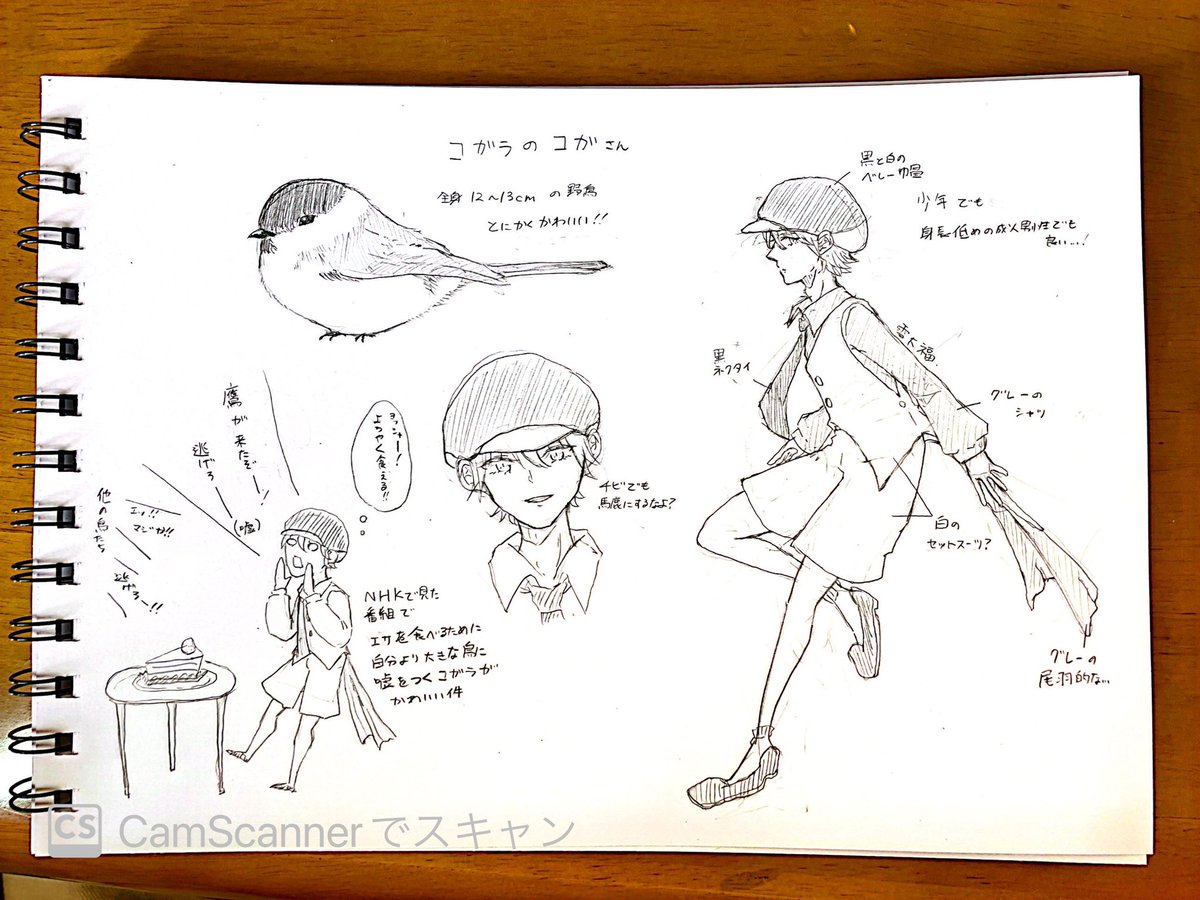 コガラの コガさん
全身 12～13cm の野鳥
とにかくかわいい!!
黒と白の
ベレー帽
少年でも
身長低めの成人男性でも
良い…!
雪大福
黒
ネクタイ
グレーの
シャツ
白の
セットスーツ?
グレーの
尾羽的な…
チビでも
馬鹿にするなよ?
ヨッシャー!
ようやく食える!!
鷹が来たぞー!
逃げろー
(嘘)
他の鳥たち
エッ!!
マジか!!
逃げろー!!
NHKで見た
番組で
エサを食べるために
自分より大きな鳥に
嘘をつくコガラが
かわいい件
CS CamScannerでスキャン